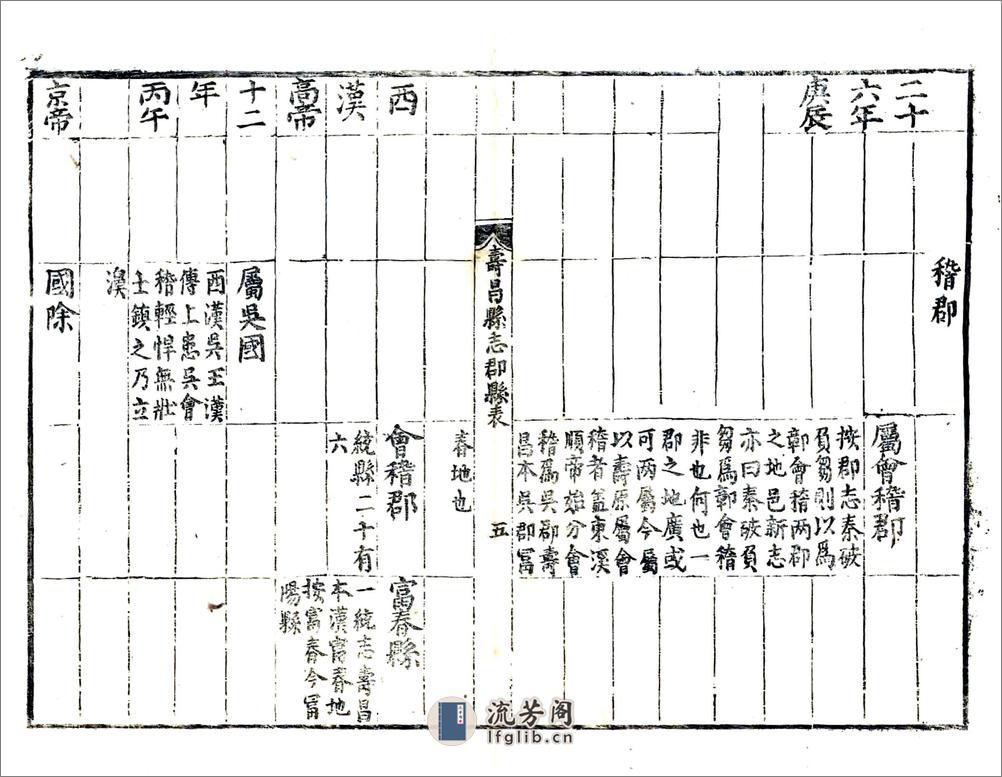 二十
六年
庚辰
稽郡
屬會稽郡
按郡志秦破
負芻則以爲
鄣會稽兩郡
之地邑新志
亦曰秦破負
芻爲鄣會稽
非也何也一
郡之地廣或
可两屬今屬
以壽原屬會
稽者盖東溪
順帝始分會
稽爲吳郡壽
昌本吳郡冨
春地也
壽昌縣志郡縣表
五
西
漢
高帝
十二
年
丙午
京帝
會稽郡
統縣二十有
六
富春縣
一統志壽昌
本漢富春地
按富春今冨
陽縣
屬吳國
西漢吳王濞
傳上患吳會
稽輕悍無壯
王鎮之乃立
濞
國除
流芳阁
lfglib.cn